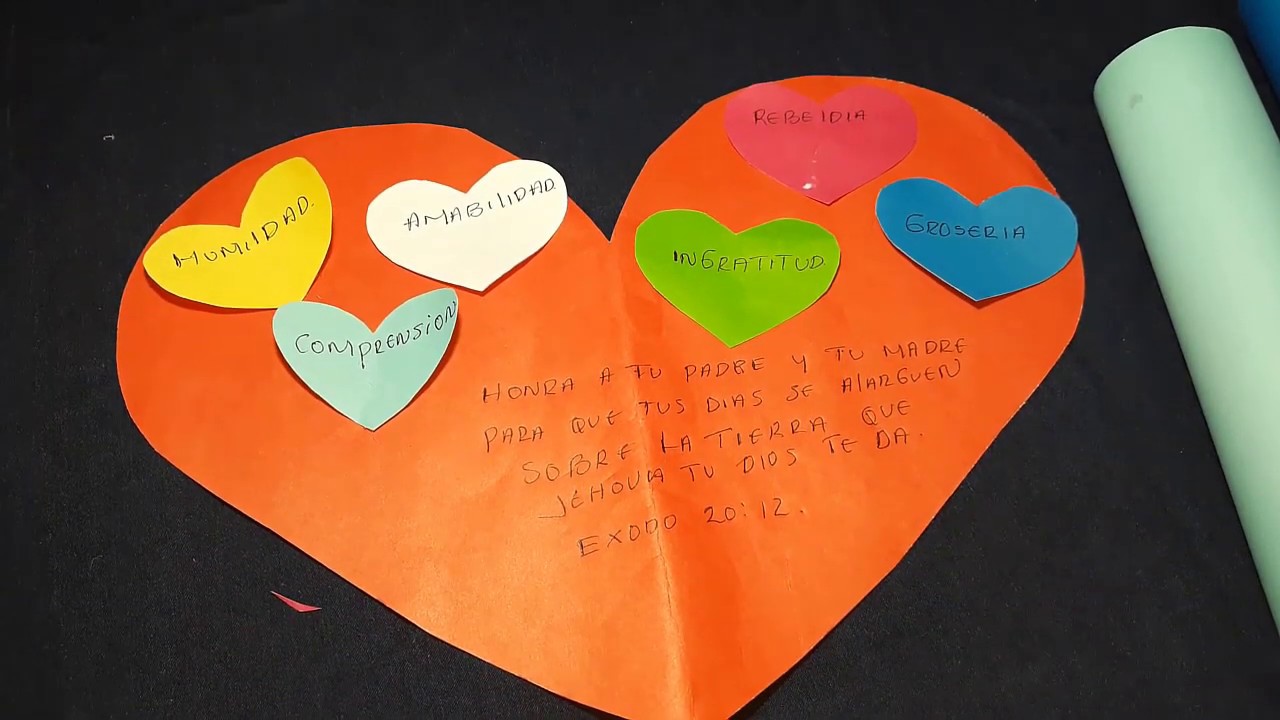 HUMIlDAD.
AMABILIDAD
COMPRENSION
REBElDIA
INGRATITUD.
GROSERIA
HONRA A TU PADRE Y TU MADRE
PARA QUE TUS DIAS SE AlARGUEN
SOBRE LA TIERRA QUE
JEHOVA TU DIOS TE DA.
EXODO 20:12.